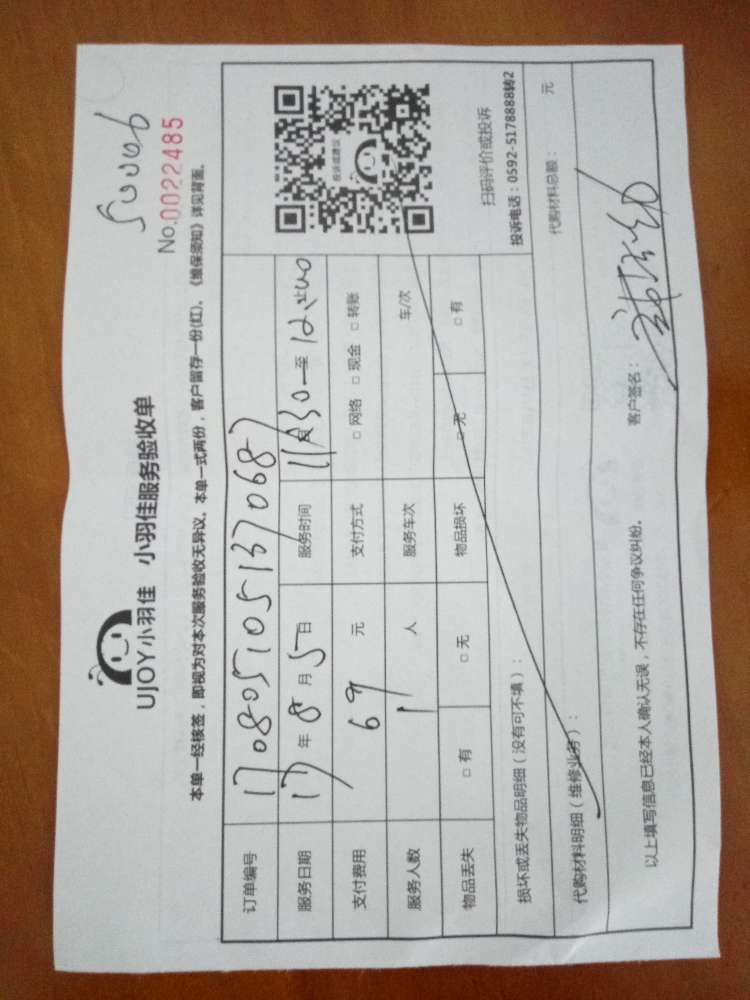 UJOY小羽佳 小羽佳服务验收单
No.0022485
本单一经核签，即视为对本次服务验收无异议。本单一式两份，客户留存一份(红)。《维保须知》详见背面。
订单编号 1708051051370687
服务日期 17年8月5日 服务时间 11:30—至12:00
支付费用 69元 支付方式 □网络 □现金 □转账
服务人数 1人 服务车次 车/次
物品丢失 □有 □无 物品损坏 □无 □有
投诉或建议
扫码评价或投诉
投诉电话：0592-5178888转2
损坏或丢失物品明细（没有可不填）：
代购材料明细（维修业务）： 代购材料总额： 元
以上填写信息已经本人确认无误，不存在任何争议纠纷。 客户签名：